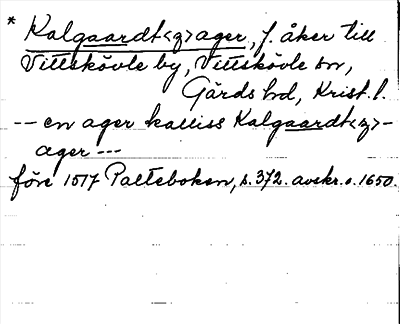 * Kalgaardt<z>ager, f. åker till
Vittskövle by, Vittskövle sn,
Gärds hd, Krist. l.
-- en ager kalliss Kalgaardt<z>-
ager ---
före 1517 Palteboken, s. 372. avskr. o. 1650.